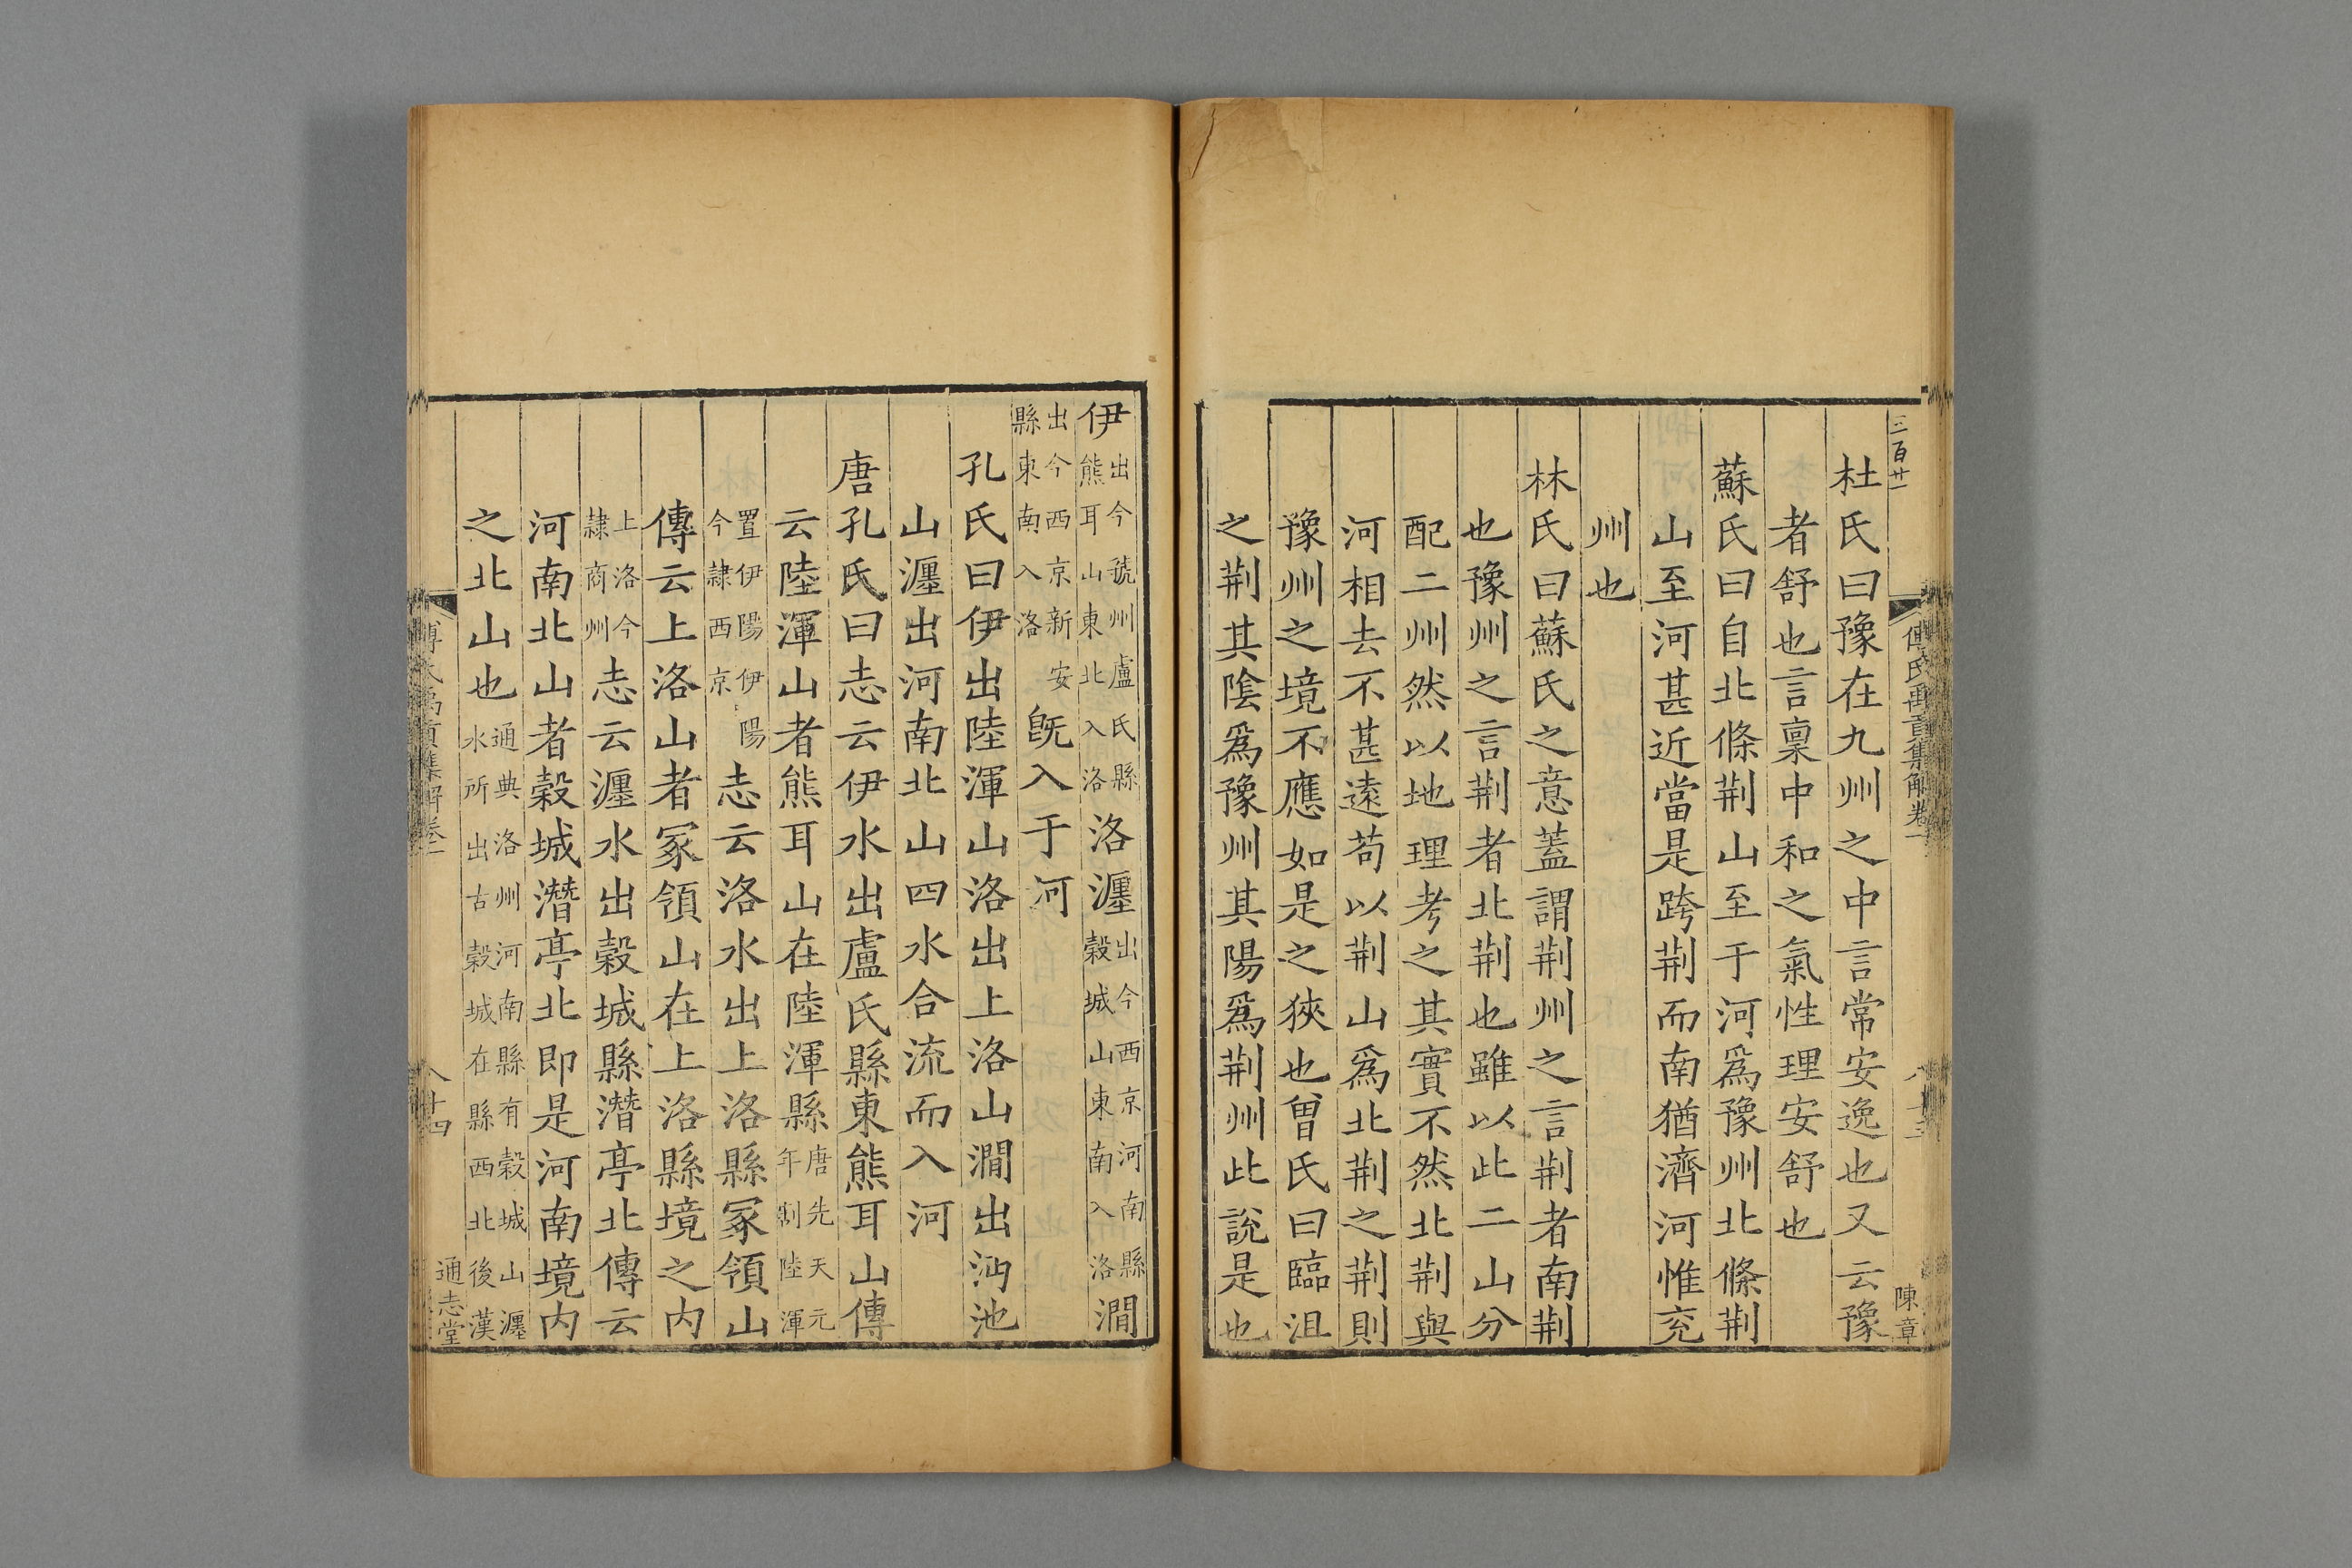 三百廿一
傅氏禹貢集解卷一
陳章
杜氏曰豫在九州之中言常安逸也又云豫
者舒也言稟中和之氣性理安舒也
蘇氏曰自北條荆山至于河爲豫州北條荆
山至河甚近當是跨荆而南猶濟河惟兖
州也
林氏曰蘇氏之意蓋謂荆州之言荆者南荆
也豫州之言荆者北荆也雖以此二山分
配二州然以地理考之其實不然北荆與
河相去不甚遠苟以荆山爲北荆之荆則
豫州之境不應如是之狹也曽氏曰臨沮
之荆其陰爲豫州其陽爲荆州此説是也
伊出今虢州盧氏縣熊耳山東北入洛洛瀍出今西京河南縣穀城山東南入洛澗
出今西京新安縣東南入洛旣入于河
孔氏曰伊出陸渾山洛出上洛山澗出沔池
山瀍出河南北山四水合流而入河
唐孔氏曰志云伊水出盧氏縣東熊耳山傳
云陸渾山者熊耳山在陸渾縣唐先天元年割陸渾
置伊陽伊陽今隷西京志云洛水出上洛縣冢領山
傳云上洛山者冢領山在上洛縣境之内
上洛今隷商州志云瀍水出穀城縣潛亭北傳云
河南北山者穀城潛亭北即是河南境内
之北山也通典洛州河南縣有穀城山瀍水所出古穀城在縣西北後漢
傅氏禹貢集解卷二
八十四
通志堂